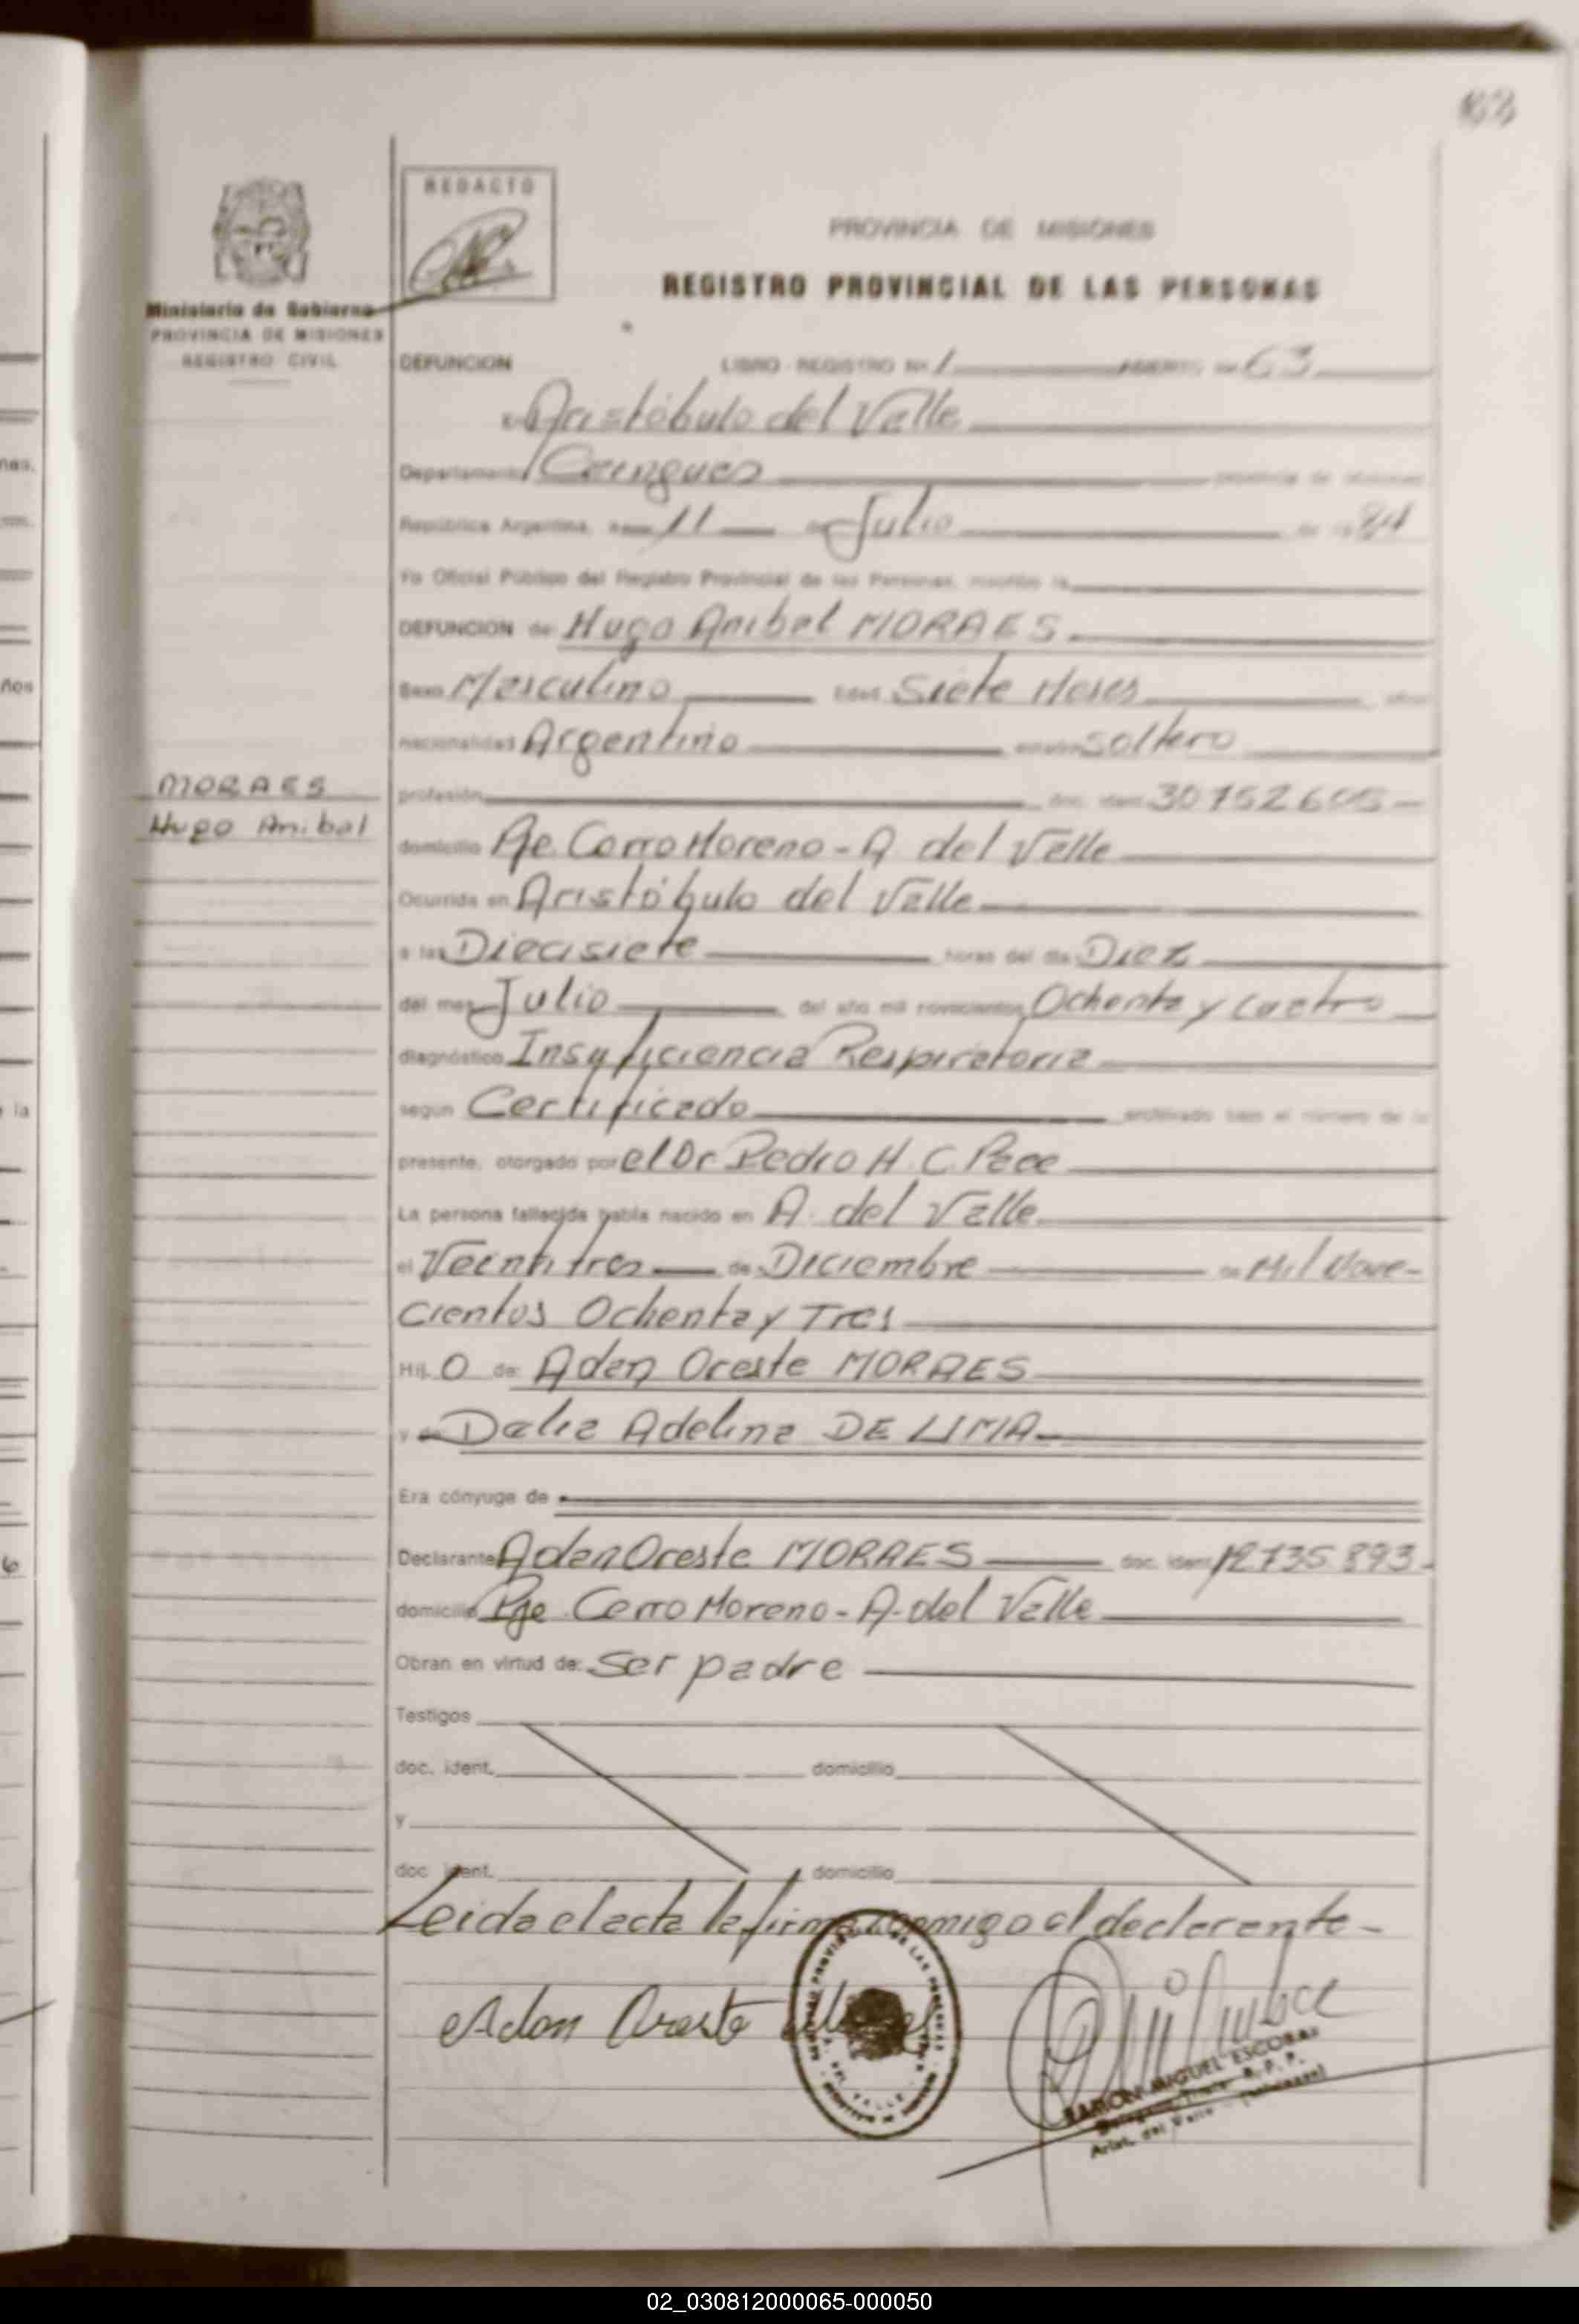 63
REDACTO
PROVINCIA DE MISIONES
REGISTRO PROVINCIAL DE LAS PERSONAS
Ministerio de Gobierno
PROVINCIA DE MISIONES
REGISTRO CIVIL
DEFUNCION LIBRO - REGISTRO Nº 1 63
En Aristóbulo del Valle
Departamento Cainguas provincia de Misiones
República Argentina, a 11 de Julio de 19 84
Yo Oficial Público del Registro Provincial de las Personas, inscribo la
DEFUNCION de Hugo Anibal MORAES
Sexo Masculino Edad Siete Meses años
nacionalidad Argentino estado soltero
MORAES
Hugo Anibal
profesión doc. ident.
domicilio Pje. Cerro Moreno - A. del Valle
Ocurrida en Aristóbulo del Valle
a las Diecisiete horas del día Diez
del mes Julio del año mil novecientos Ochenta y Cuatro
diagnóstico Insuficiencia Respiratoria
según Certificado archivado bajo el número de la
presente, otorgado por el Dr Pedro H. C.
La persona fallecida había nacido en A. del Valle
el Veintitres de Diciembre de Mil Nove-
cientos Ochenta y Tres
Hij O de: Aden Oreste MORAES
y de Dalia Adelina DE LIMA
Era cónyuge de
Declarante Aden Oreste MORAES doc. ident. 12.735.893-
domicilio Pje Cerro Moreno - A. del Valle
Obran en virtud de: Ser padre
Testigos
doc. ident. domicilio
y
doc ident. domicilio
Leida el acta la firma conmigo el declarante-
Adan Oreste
RAMON MIGUEL ESCOBAR
R. P. P.
Arist. del Valle (Misiones)
02_030812000065-000050